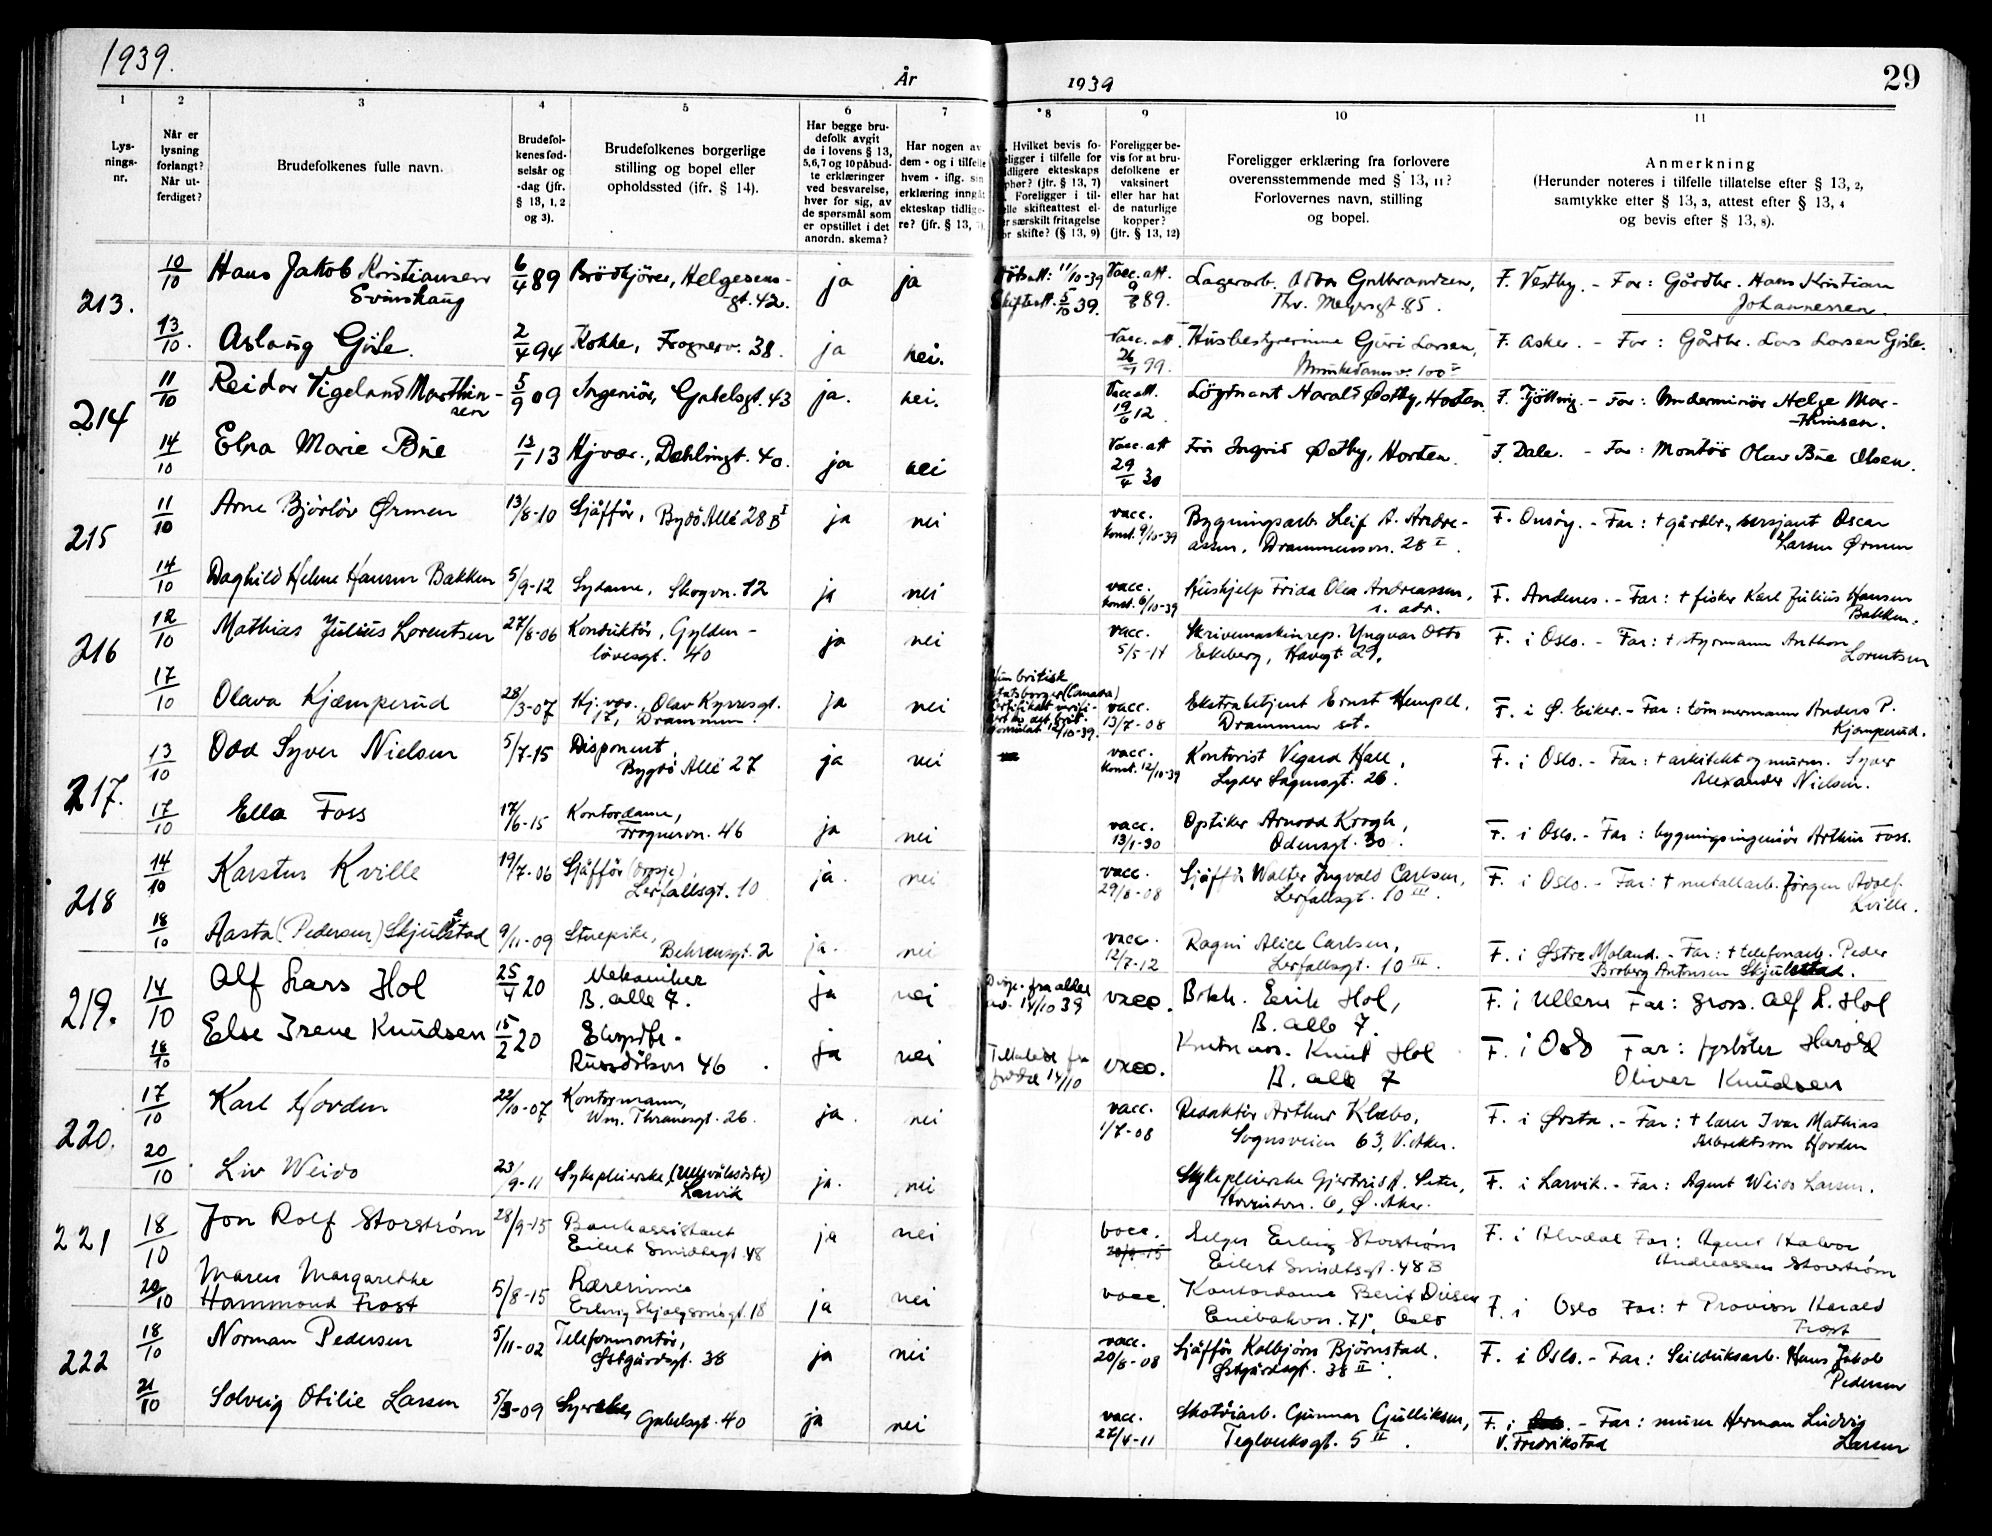 1939.
År
1939
29
1
2
3
4
5
6
7
8
9
10
11
Lys-
nings-
nr.
Når er
lysning
forlangt?
Når ut-
ferdiget?
Brudefolkenes fulle navn.
Brudefol-
kenes fød-
selsår og
-dag (jfr.
§ 13, 1, 2
og 3).
Brudefolkenes borgerlige
stilling og bopel eller
opholdssted (jfr. § 14).
Har begge bru-
defolk avgit
de i lovens § 13,
5, 6, 7 og 10 påbud-
te erklæringer
ved besvarelse,
hver for sig, av
de spørsmål som
er opstillet i det
anordn. skema?
Har nogen av
dem - og i tilfelle
hvem - iflg. sin
erklæring inngåt
ekteskap tidlige-
re? (jfr. § 13,
Hvilket bevis fo-
eligger i tilfelle for
idligere ekteskaps
phør? (jfr. § 13, 7)
Foreligger i til-
elle skifteattest el-
er særskilt fritagelse
or skifte? (§ 13, 9)
Foreligger be-
vis for at bru-
defolkene er
vaksinert
eller har hat
de naturlige
kopper?
(jfr. § 13, 12)
Foreligger erklæring fra forlovere
overensstemmende med § 13, 11?
Forlovernes navn, stilling
og bopel.
Anmerkning
(Herunder noteres i tilfelle tillatelse efter § 13, 2,
samtykke efter § 13, 3, attest efter § 13, 4
og bevis efter § 13, 8).
213. 10/10 Hans Jakob Kristiansen 6/4 89 Brödkjörer, Helgesens- ja ja 11/10-39 Vacc. att. Lagerarb. Gulbrandsen, F. Vestby. - Far: Gårdbr. Hans Kristian
Svinskaug gt. 42. Skifteatt. 5/10 39. 9/8 89. Thv. Meyersgt. 85. Johannessen.
13/10. Aslaug Gisle. 2/4 94 Kokke, Frognerv. 38. ja nei. Vacc. att. Husbestyrerinne Guri Larsen, F. Asker. - Far: Gårdbr. Lars Larsen Gisle.
26/7 99. Munkedamsv. 100
214 11/10 Reidar Vigeland Marthin- 5/9 09 Ingeniör, Gabelsgt. 43 ja. nei. Vacc. att. Löytnant Harald Østby, Horten. F. Tjölling. - Far: Underminör Helge Mar-
sen 19/6 12 thinsen.
14/10 Elna Marie Bue 12/1 13 Hjvær., Dahlingt. 40. ja nei Vacc. att Fru Ingrid Østby, Horten. F. Dale. - Far: Montör Olav Bue Olsen.
29/4 30
215 11/10 Arne Bjørløv Ørmen 13/8-10 Sjåfför, Bydö Allé 28 B I ja nei vacc. Bygningsarb. Leif A. Andre- F. Onsöy. - Far: † gårdbr., sersjant Oscar
konst. 9/10-39 assen, Drammensvn. 28 I. Larsen Ørmen
14/10 Daghild Helene Hansen Bakken 5/9-12 Sydame, Skogvn. 12 ja nei vacc. Hushjelp Frida Olea Andreassen, F. Andenes. - Far: † fisker Karl Julius Hansen
konst. 6/10-39 s. adr. Bakken.
216 12/10 Mathias Julius Lorentsen 27/8-06 Konduktör, Gylden- ja nei vacc. Skrivemaskinrep. Yngvar Otto F. i Oslo. - Far: † styrmann Anthon
lövesgt. 40 5/5-14 Ekeberg, Kavgt. 29. Lorentsen
17/10 Olava Kjæmperud 28/3-07 Hj. vær., Olav Kyrresgt. ja nei britisk statsborger (Canada) vacc. Ekstrabetjent Ernst Hempel, F. i Ø. Eiker. - Far: tömmermann Anders P.
17, Drammen. 12/10-39. 13/7-08 Drammen st. Kjæmperud.
217. 13/10 Odd Syver Nielsen 5/7-15 Disponent, ja nei vacc. Kontorist Vegard Hall, F. i Oslo. - Far: † arkitekt og murm. Syver
Bygdö Allé 27 konst. 12/10-39 Lyder Sagensgt. 26. Alexander Nielsen.
17/10 Ella Foss 17/6-15 Kontordame, ja nei vacc. Optiker Arvodd Krogh, F. i Oslo. - Far: bygningsingeniör Arthur Foss.
Frognervn. 46 13/1-30 Odensgt. 30.
218 14/10 Karsten Kville 19/7-06 Sjåfför (drosje), ja. nei vacc. Sjåfför Walter Ingvald Carlsen, F. i Oslo. - Far: † metallarb. Jörgen Adolf
Lerfallsgt. 10 29/8-08 Lerfallsgt. 10 III. Kville.
18/10 Aasta (Pedersen) Skjulestad 9/11-09 Stuepike, ja. nei vacc. Ragni Alice Carlsen, F. i Østre Moland. - Far: † telefonarb. Peder
Behrensgt. 2 12/7-12 Lerfallsgt. 10 III. Broberg Antonsen Skjulestad.
219. 14/10 Alf Lars Hol 25/4 20 Mekaniker ja nei Disp. fra alder 14/10 39 vacc. Bokh. Eerik Hol, F. i Ullern Far: gross. Alf L. Hol
B. alle 7. B. alle 7.
18/10 Else Irene Knudsen 15/2 20 Ekspdtr. ja nei Tillatelse fra 14/10 vacc. Knut Hol F. i Oslo Far: fyrböter Harold
46 B. alle 7 Oliver Knudsen
220. 17/10 Karl Hovden 22/10-07 Kontormann, ja. nei vacc. Redaktör Arthur Klæbo, F. i Ørsta. - Far: † lærer Ivar Mathias
Wm. Thranesgt. 26. 1/7-08 Sognsveien 63, V. Aker. Albrektsson Hovden
20/10 Liv Weido 23/9-11 Sykepleierske, (Ullevålsöster) ja. nei Sykepleierske Gjertrud A. Seter, F. i Larvik. - Far: Agent Weido Larsen.
Larvik 6, Ø. Aker.
221 18/10 Jon Rolf Storström 28/9-15 Bankassistent ja nei vacc. Selger Erling Storström F. i Alvdal Far: Agent Halvor
Eilert Sundtsgt. 48 Eilert Sundtsgt. 48 B Andreassen Storström
20/10 Maren Margarethe 5/8-15 Lærerinne ja nei vacc. Kontordame Berit Diesen F. i Oslo Far: † Provisor Harald
Hammond Frost Erling Skjalgssonsgt. 18 Enebakvn. 71, Oslo Frost
222 18/10 Norman Pedersen 5/11-02 Telefonmontör, ja nei vacc. Sjåfför Kolbjörn Björnstad. F. i Oslo. - Far: Seildukarb. Hans Jakob
Östgårdsgt. 38 20/8-08 Östgårdsgt. 38 II. Pedersen
21/10 Solveig Otilie Larsen 5/3-09 Syerske, Gabelsgt. 40 ja nei vacc. Skotöiarb. Gunnar Gulliksen, F. i - Far: murer Herman Ludvig
27/4-11 Teglverksgt. 5 II. V. Fredrikstad Larsen